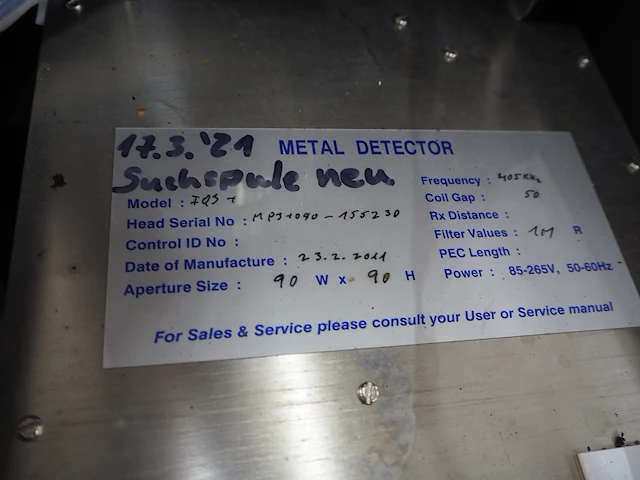 17.3.'21 METAL DETECTOR
Suchspule neu
Model : IQ3+
Head Serial No :
Control ID No :
Date of Manufacture : 23.2.2011
Aperture Size : 90 W x 90 H
Frequency : 405KHz
Coil Gap : 50
Rx Distance :
Filter Values : 1M R
PEC Length :
Power : 85-265V, 50-60Hz
For Sales & Service please consult your User or Service manual